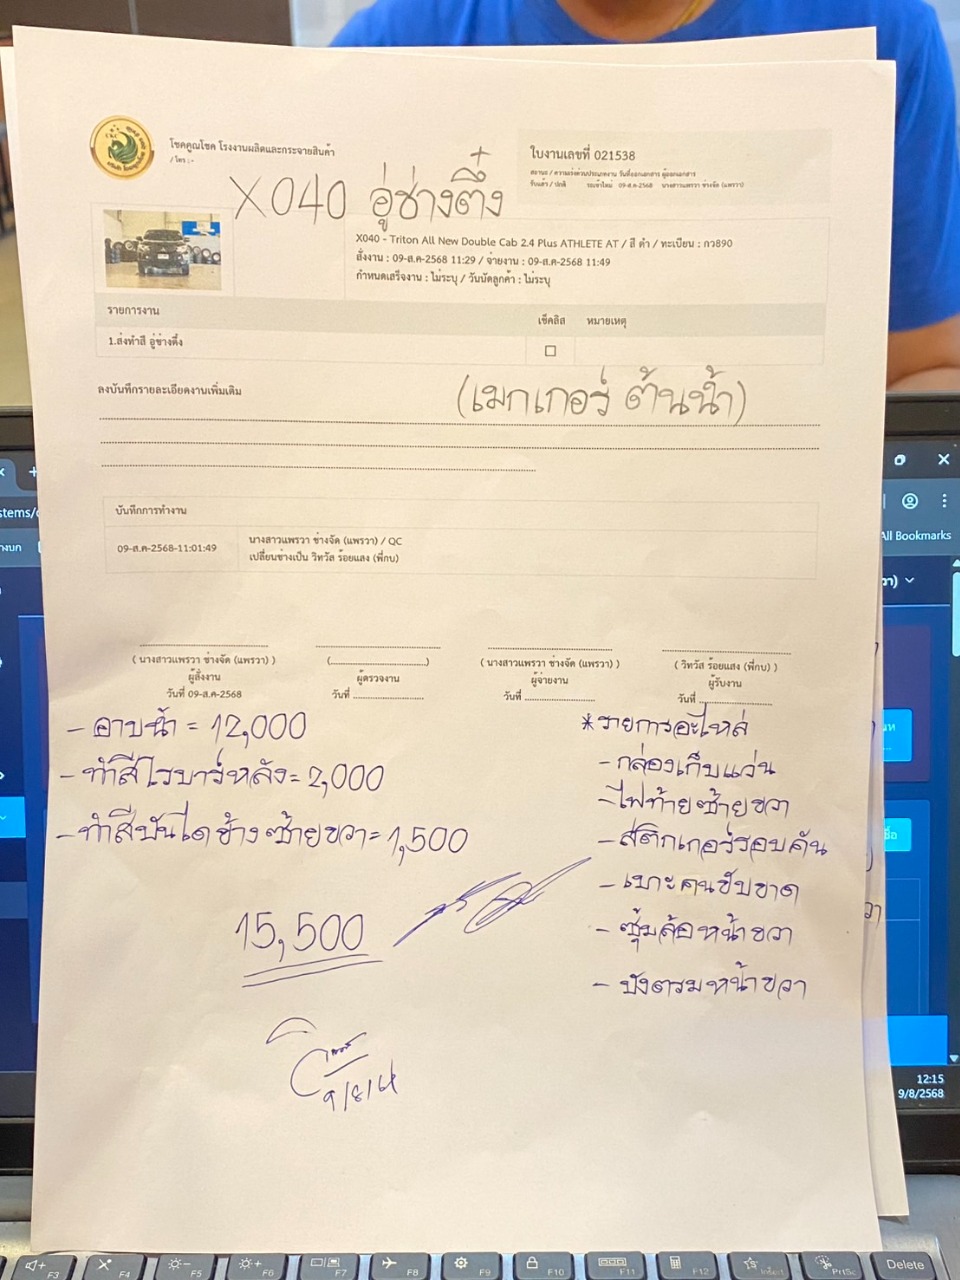 โชคคูณโชค โรงงานผลิตและกระจายสินค้า
/ โทร :-
ใบงานเลขที่ 021538
สถานะ / ความเร่งด่วนประเภทงาน วันที่ออกเอกสาร ผู้ออกเอกสาร
รับแล้ว / ปกติ รถเข้าใหม่ 09-ส.ค-2568 นางสาวแพรวา ช่างจัด (แพรวา)
X040 อู่ช่างตึ๋ง
X040 - Triton All New Double Cab 2.4 Plus ATHLETE AT / สี ดำ / ทะเบียน : กว890
สั่งงาน : 09-ส.ค-2568 11:29 / จ่ายงาน : 09-ส.ค-2568 11:49
กำหนดเสร็จงาน : ไม่ระบุ / วันนัดลูกค้า : ไม่ระบุ
รายการงาน เช็คลิส หมายเหตุ
1.ส่งทำสี อู่ช่างตึ๋ง
ลงบันทึกรายละเอียดงานเพิ่มเติม
(เมกเกอร์ ต้นน้ำ)
บันทึกการทำงาน
09-ส.ค-2568-11:01:49
นางสาวแพรวา ช่างจัด (แพรวา) / QC
เปลี่ยนช่างเป็น วิทวัส ร้อยแสง (พี่กบ)
( นางสาวแพรวา ช่างจัด (แพรวา) )
ผู้สั่งงาน
วันที่ 09-ส.ค-2568
(........................)
ผู้ตรวจงาน
วันที่ ..................
( นางสาวแพรวา ช่างจัด (แพรวา) )
ผู้จ่ายงาน
วันที่ ..................
( วิทวัส ร้อยแสง (พี่กบ) )
ผู้รับงาน
วันที่ ..................
- อาบน้ำ = 12,000
- ทำสีโรบาร์หลัง = 2,000
- ทำสีบันไดข้างซ้ายขวา = 1,500
15,500
9/8/68
*รายการอะไหล่
- กล่องเก็บแว่น
- ไฟท้ายซ้ายขวา
- สติกเกอร์รอบคัน
- เบาะคนขับขาด
- ซุ้มล้อหน้าขวา
- บังตรมหน้าขวา
All Bookmarks
12:15
9/8/2568
F3
F4
F5
F6
F7
F8
F9
F10
F11
F12
PrtSc
Delete